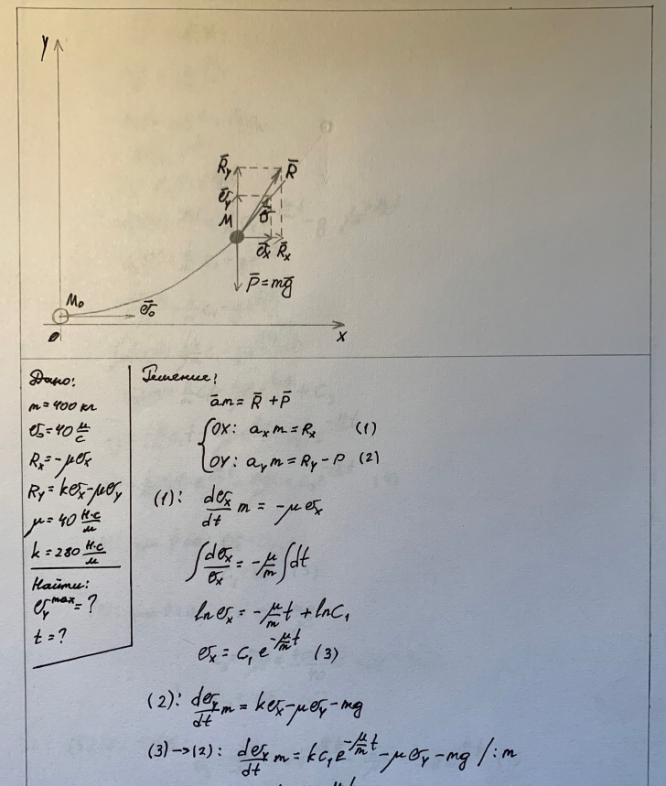 y
R̄y
R̄
v̄y
M
v̄
v̄x R̄x
P̄=mḡ
M₀
v̄₀
0
x
Дано:
m=400 кг
v₀=40 м/с
Rx=-μvx
Ry=kvx-μvy
μ=40 Н·с/м
k=280 Н·с/м
Найти:
vy^max=?
t=?
Решение:
ām= R̄ +P̄
{OX: axm=Rx (1)
OY: aym=Ry-P (2)
(1): dvx/dt m = -μvx
∫dvx/vx = -μ/m ∫dt
ln vx = -μ/m t + lnC₁
vx = C₁e^(-μ/m t) (3)
(2): dvy/dt m = kvx-μvy-mg
(3)->(2): dvy/dt m = kC₁e^(-μ/m t) -μvy-mg /:m